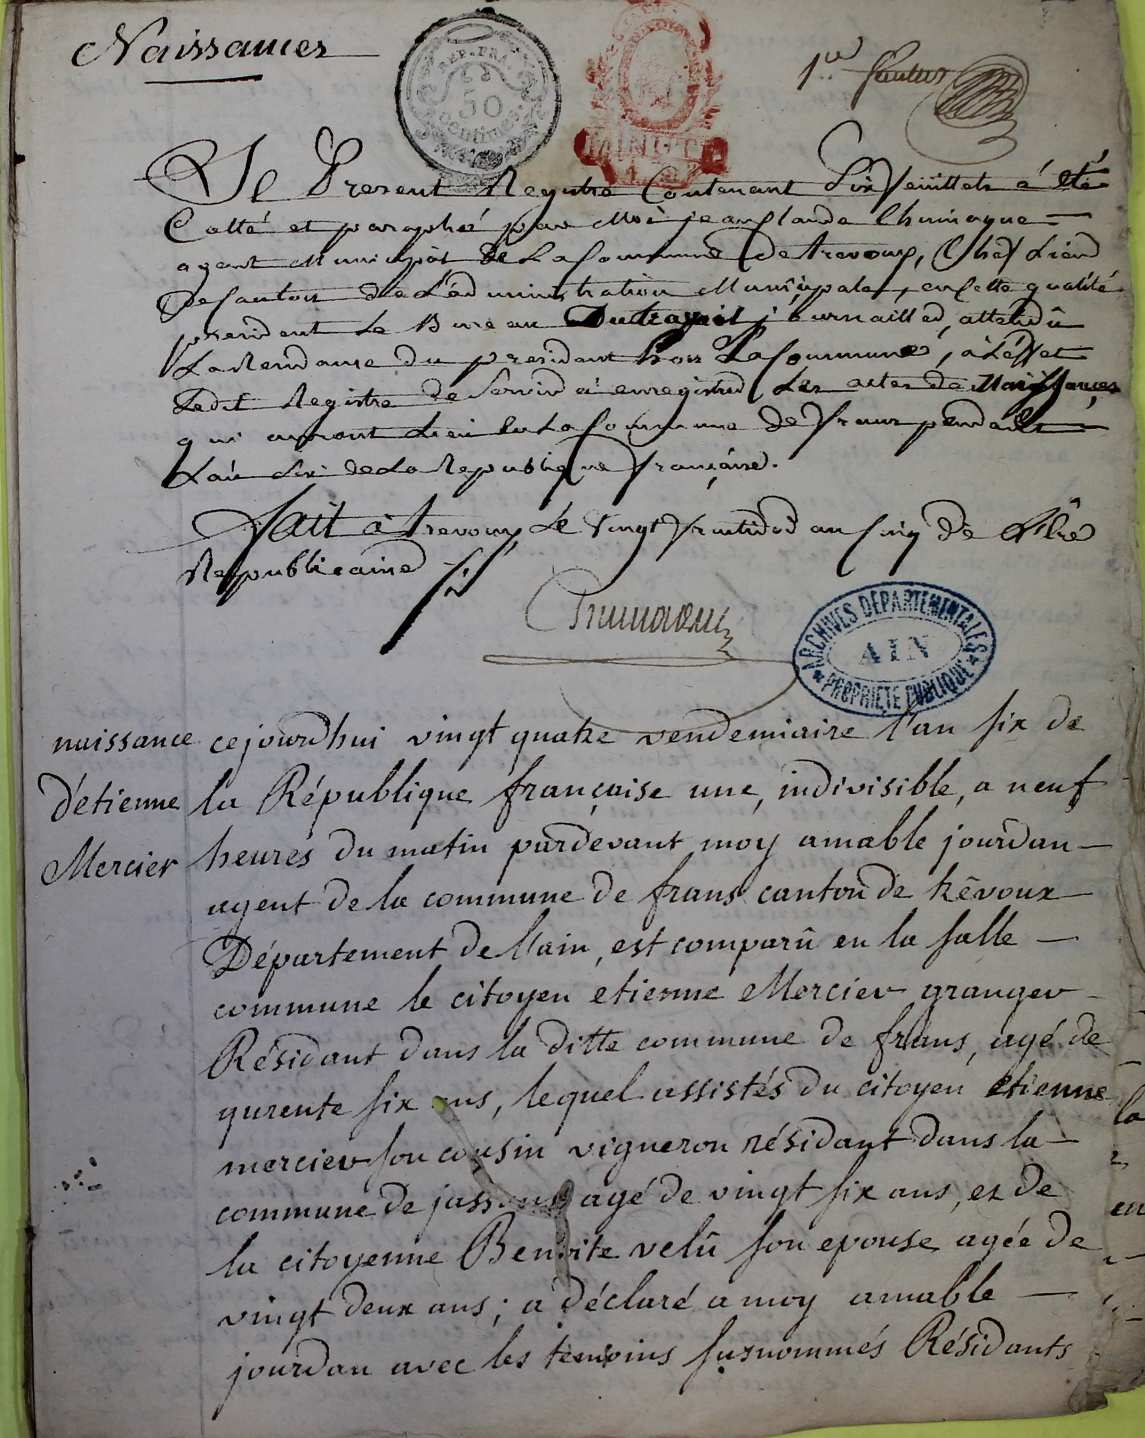 Naissances
REP. FRA.
50
centimes
1er feuillet
Le Present Registre Contenant Six feuillets à été
Cotté et paraphé par Moi jean Claude Chuinague
agent Municipal de La Commune de trevoux, Chef Lieu
de Canton de L'administration Municipale, en cette qualité
president Le Bureau journaillé, attendû
du president hors La Commune, à L'effet
Ledit Registre de Servir à enregistrer Les actes de Naissances
qui auront Lieu en La Commune de frans pendant
L'an Six de La Republique française.
fait à trevoux Le vingt fructidor an Cinq de L'Ere
Republicaine
ARCHIVES DEPARTEMENTALES
AIN
PROPRIETE PUBLIQUE
naissance
d'etienne
Mercier
cejourdhui vingt quatre vendemiaire l'an six de
la République française une, indivisible, a neuf
heures du matin pardevant moy amable jourdan
agent de la commune de frans canton de trêvoux
Département de l'ain, est comparû en la salle
commune le citoyen etienne Mercier granger
Résidant dans la ditte commune de frans, agé de
qurente six ans, lequel assistés du citoyen etienne
mercier son cousin vigneron résidant dans la
commune de jassans agé de vingt six ans, et de
la citoyenne Benoite velû son epouse agée de
vingt deux ans; a déclaré a moy amable
jourdan avec les temoins susnommés Résidants